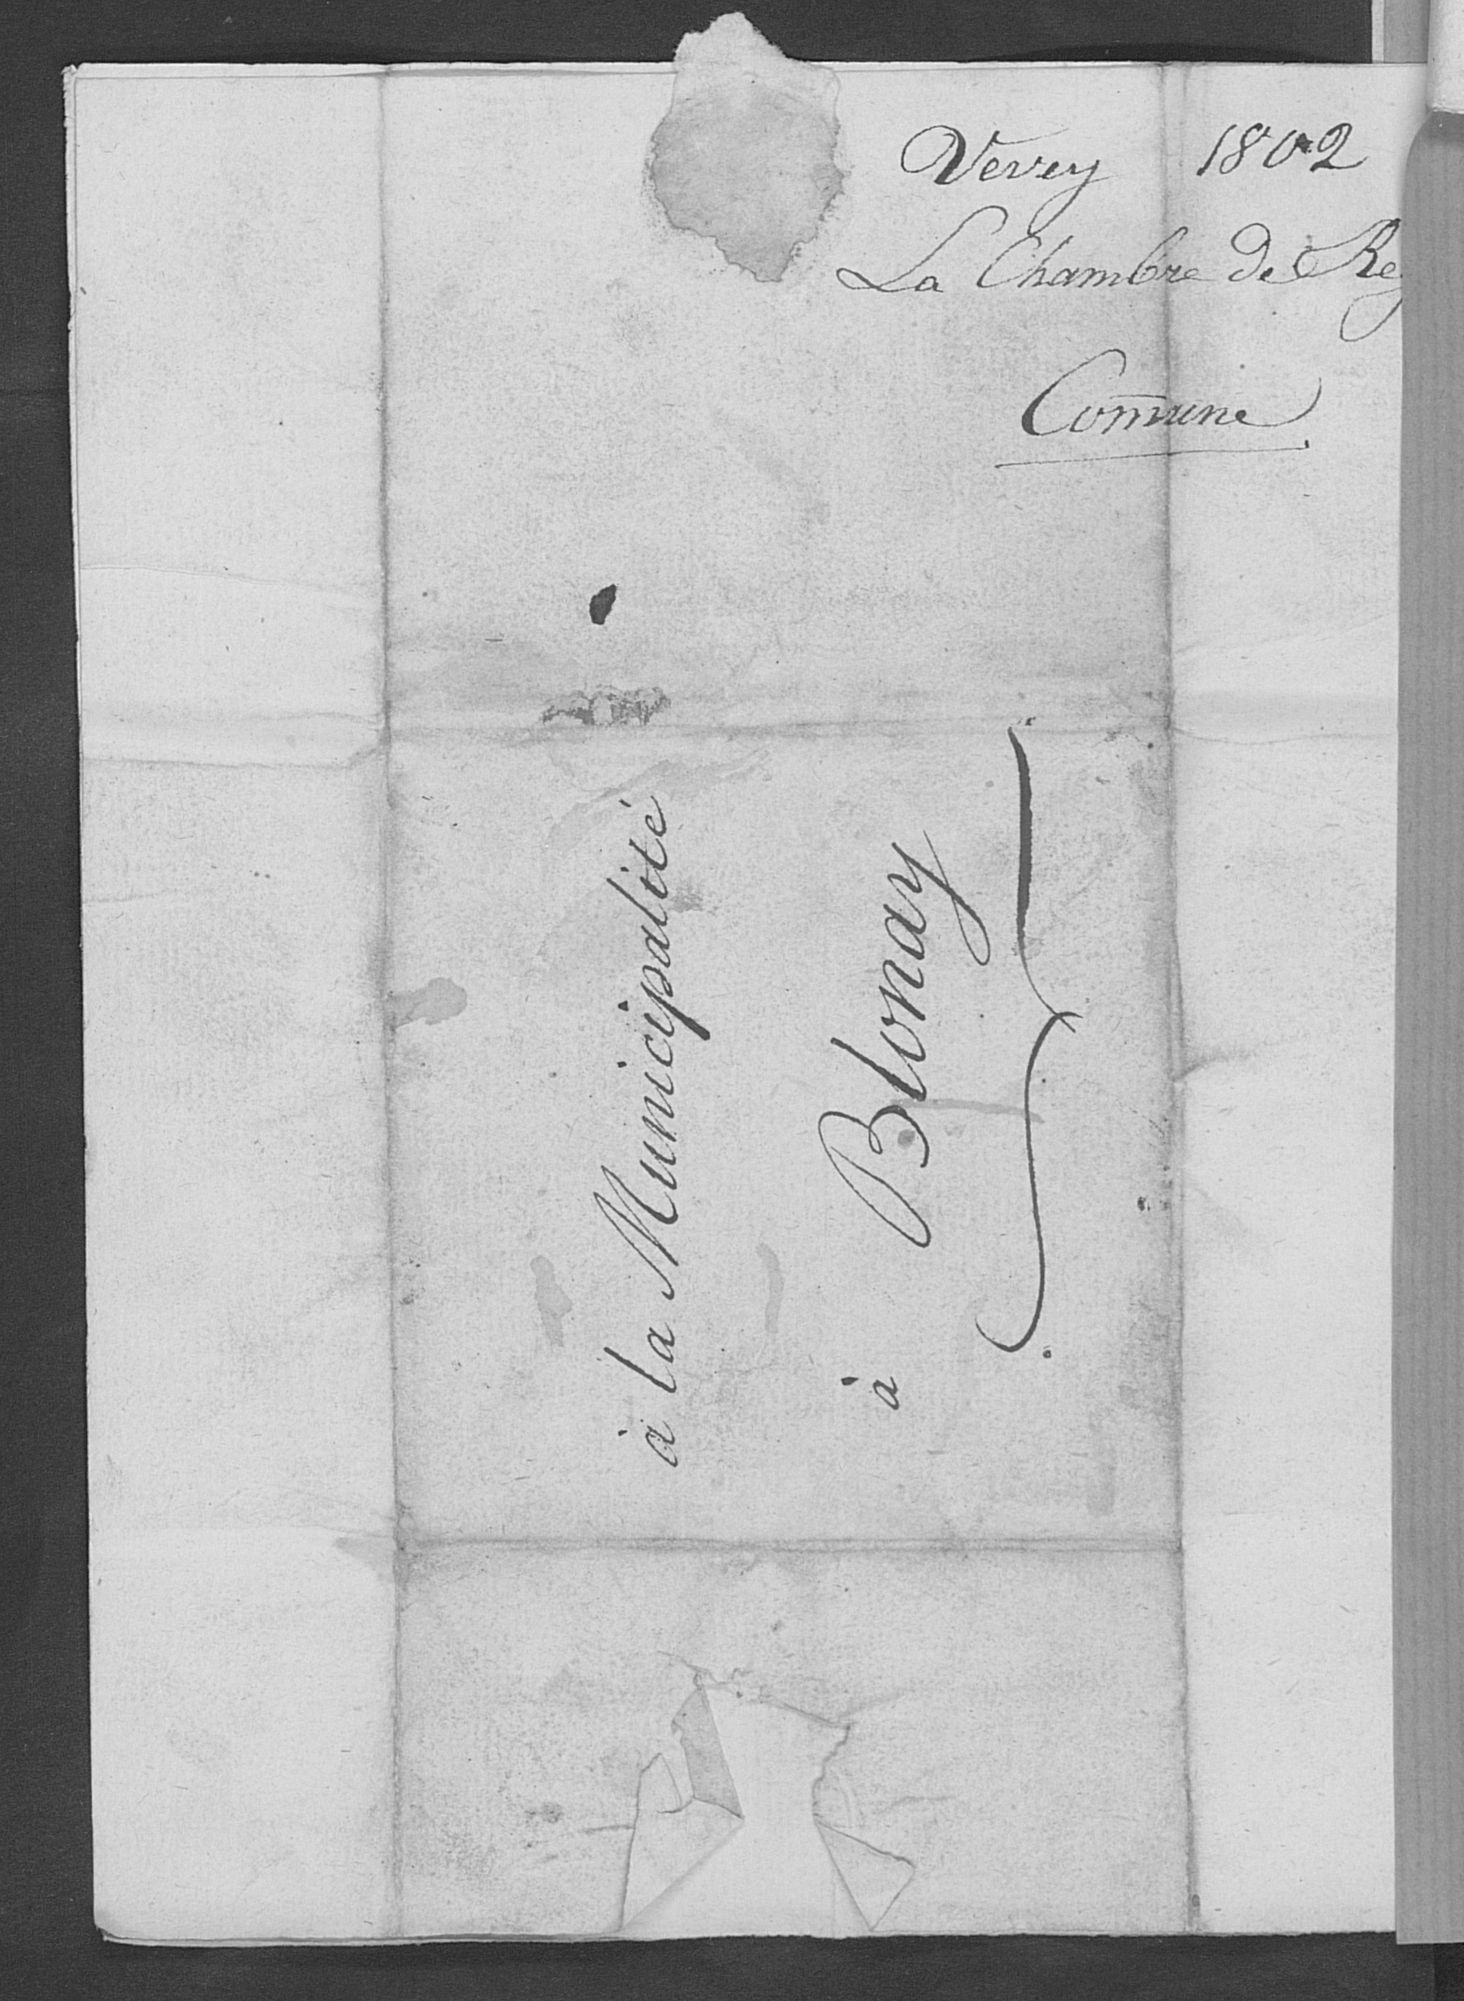 Vevey 1802
La Chambre de Reg
Com̅une
à la Municipalité
à Blonay